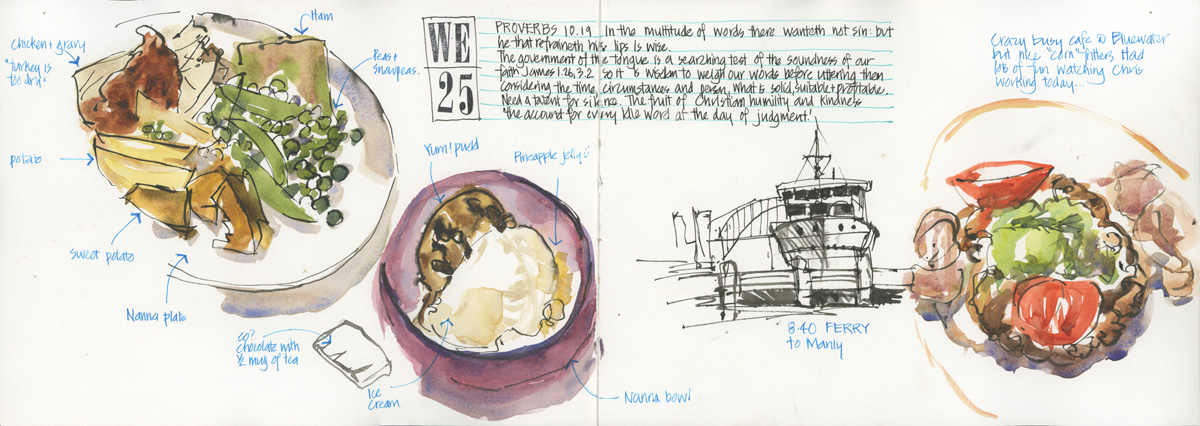 Ham
Chicken + gravy
"turkey is
too dry"
Peas +
Snowpeas.
potato
sweet potato
Nanna plate
WE
25
PROVERBS 10.19 In the multitude of words there wanteth not sin: but
he that refraineth his lips is wise.
The government of the tongue is a searching test of the soundness of our
faith James 1.26, 3.2 so it is wisdom to weigh our words before uttering them
considering the time, circumstances and person, what is solid, suitable + profitable.
Need a talent for silence. The fruit of Christian humility and kindness
"the account for every idle word at the day of judgment!
Yum! pudd
Pineapple jelly
chocolate with
1/2 mug of tea
Ice
cream
Nanna bowl
8.40 FERRY
to Manly
Crazy busy cafe @ Bluewater
but nice "corn" fritters. Had
lot of fun watching Chris
working today...